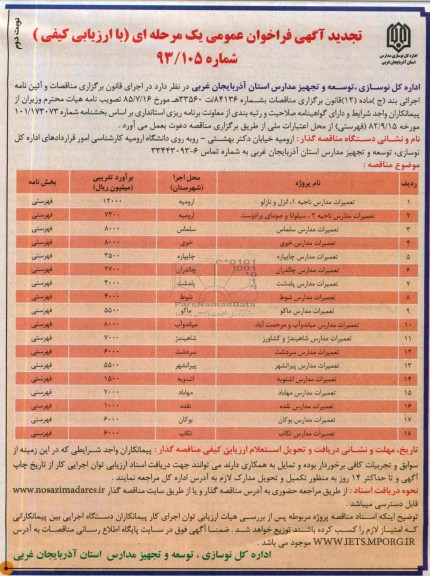 نوبت دوم
تجدید آگهی فراخوان عمومی یک مرحله ای (با ارزیابی کیفی)
شماره ۹۳/۱۰۵
اداره کل نوسازی مدارس
استان آذربایجان غربی
اداره کل نوسازی، توسعه و تجهیز مدارس استان آذربایجان غربی در نظر دارد در اجرای قانون برگزاری مناقصات و آئین نامه
اجرائی بند (ج) ماده (۱۲) قانون برگزاری مناقصات بشماره ۸۴۱۳۶/ت ۳۳۵۶۰هـ مورخ ۸۵/۷/۱۶ تصویب نامه هیات محترم وزیران از
پیمانکاران واجد شرایط و دارای گواهینامه صلاحیت و رتبه بندی از معاونت برنامه ریزی استانداری بر اساس بخشنامه شماره ۱۰۱/۱۷۳۰۷۳
مورخه ۸۲/۹/۱۵ (فهرستی) از محل اعتبارات ملی از طریق برگزاری مناقصه دعوت بعمل می آورد.
نام و نشانی دستگاه مناقصه گزار: ارومیه خیابان دکتر بهشتی - روبه روی دانشگاه ارومیه کارشناسی امور قراردادهای اداره کل
نوسازی، توسعه و تجهیز مدارس استان آذربایجان غربی به شماره تماس ۶-۳۳۴۴۳۰۹۳
موضوع مناقصه:
ردیف نام پروژه محل اجرا (شهرستان) برآورد تقریبی (میلیون ریال) بخش نامه
۱ تعمیرات مدارس ناحیه ۱، انزل و نازلو ارومیه ۱۲۰۰۰ فهرستی
۲ تعمیرات مدارس ناحیه ۲، سیلوانا و صومای برادوست ارومیه ۷۳۰۰ فهرستی
۳ تعمیرات مدارس سلماس سلماس ۸۰۰۰ فهرستی
۴ تعمیرات مدارس خوی خوی ۸۰۰۰ فهرستی
۵ تعمیرات مدارس چایپاره چایپاره ۳۵۰۰ فهرستی
۶ تعمیرات مدارس چالدران چالدران ۲۷۰۰ فهرستی
۷ تعمیرات مدارس پلدشت پلدشت ۲۰۰۰ فهرستی
۸ تعمیرات مدارس شوط شوط ۴۰۰۰ فهرستی
۹ تعمیرات مدارس ماکو ماکو ۵۵۰۰ فهرستی
۱۰ تعمیرات مدارس میاندوآب و مرحمت آباد میاندوآب ۸۰۰۰ فهرستی
۱۱ تعمیرات مدارس شاهیندژ و کشاورز شاهیندژ ۷۰۰۰ فهرستی
۱۲ تعمیرات مدارس سردشت سردشت ۶۰۰۰ فهرستی
۱۳ تعمیرات مدارس پیرانشهر پیرانشهر ۵۵۰۰ فهرستی
۱۴ تعمیرات مدارس اشنویه اشنویه ۱۵۰۰ فهرستی
۱۵ تعمیرات مدارس مهاباد مهاباد ۷۰۰۰ فهرستی
۱۶ تعمیرات مدارس نقده نقده ۱۰۰۰ فهرستی
۱۷ تعمیرات مدارس بوکان بوکان ۶۰۰۰ فهرستی
۱۸ تعمیرات مدارس تکاب تکاب ۶۰۰۰ فهرستی
تاریخ، مهلت و نشانی دریافت و تحویل استعلام ارزیابی کیفی مناقصه گزار: پیمانکاران واجد شرایطی که در این زمینه از
سوابق و تجربیات کافی برخوردار بوده و تمایل به همکاری دارند می توانند جهت دریافت اسناد ارزیابی توان اجرایی کار از تاریخ چاپ
آگهی و تا حداکثر ۱۴ روز به منظور تکمیل و تحویل مدارک لازم به آدرس اداره کل مراجعه نمایند.
نحوه دریافت اسناد: از طریق مراجعه حضوری به آدرس مناقصه گذار و یا از طریق سایت مناقصه گذار www.nosazimadares.ir
قابل دسترسی میباشد
توضیح اینکه اسناد مناقصه پروژه مربوطه پس از بررسی هیات ارزیابی توان اجرای کار پیمانکاران دستگاه اجرایی بین پیمانکارانی
که امتیاز لازم را کسب کرده باشند توزیع خواهد شد. ضمناً آگهی فوق در سایت پایگاه اطلاع رسانی مناقصات به آدرس
WWW.IETS.MPORG.IR موجود می باشد.
اداره کل نوسازی، توسعه و تجهیز مدارس استان آذربایجان غربی